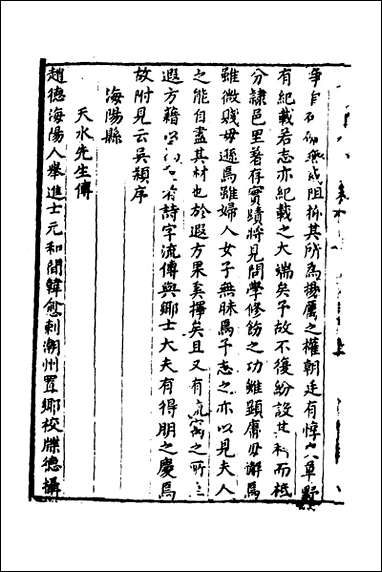 爭自
阻折其所為揚厲之權朝廷有惇
草野
有紀載若志亦紀載之大端矣予故不復紛設其
而袛
分隷邑里著存實蹟將見問學修飭之功雖顕庸毋辭焉
雖微賤毋遜焉雖婦人女子無昧焉千志之亦以見夫人
之能自盡其材也於遐方果奚擇矣且又有
寓之所
遐方籍
詩字流傳與鄉士大夫有得朋之慶焉
故附見云吳頴序
海陽縣
天水先生傳
趙德海陽人舉進士元和間韓愈刺潮州置鄉校牒德攝